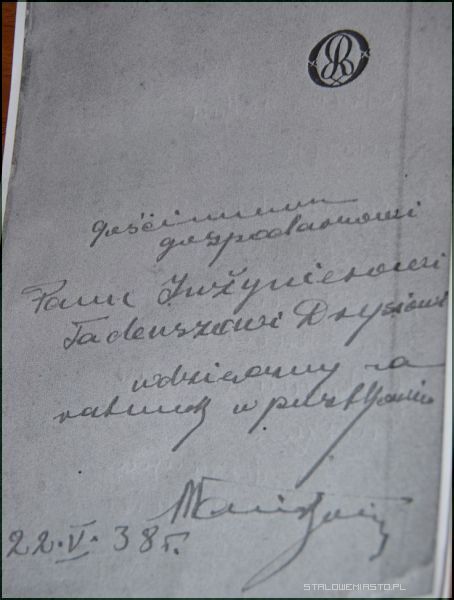 gościnnemu
gospodarzowi
Panu Inżynierowi
Tadeuszowi Drysiowi
wdzięczny za
ratunek w
22.V.38 r.
STALOWEMIASTO.PL